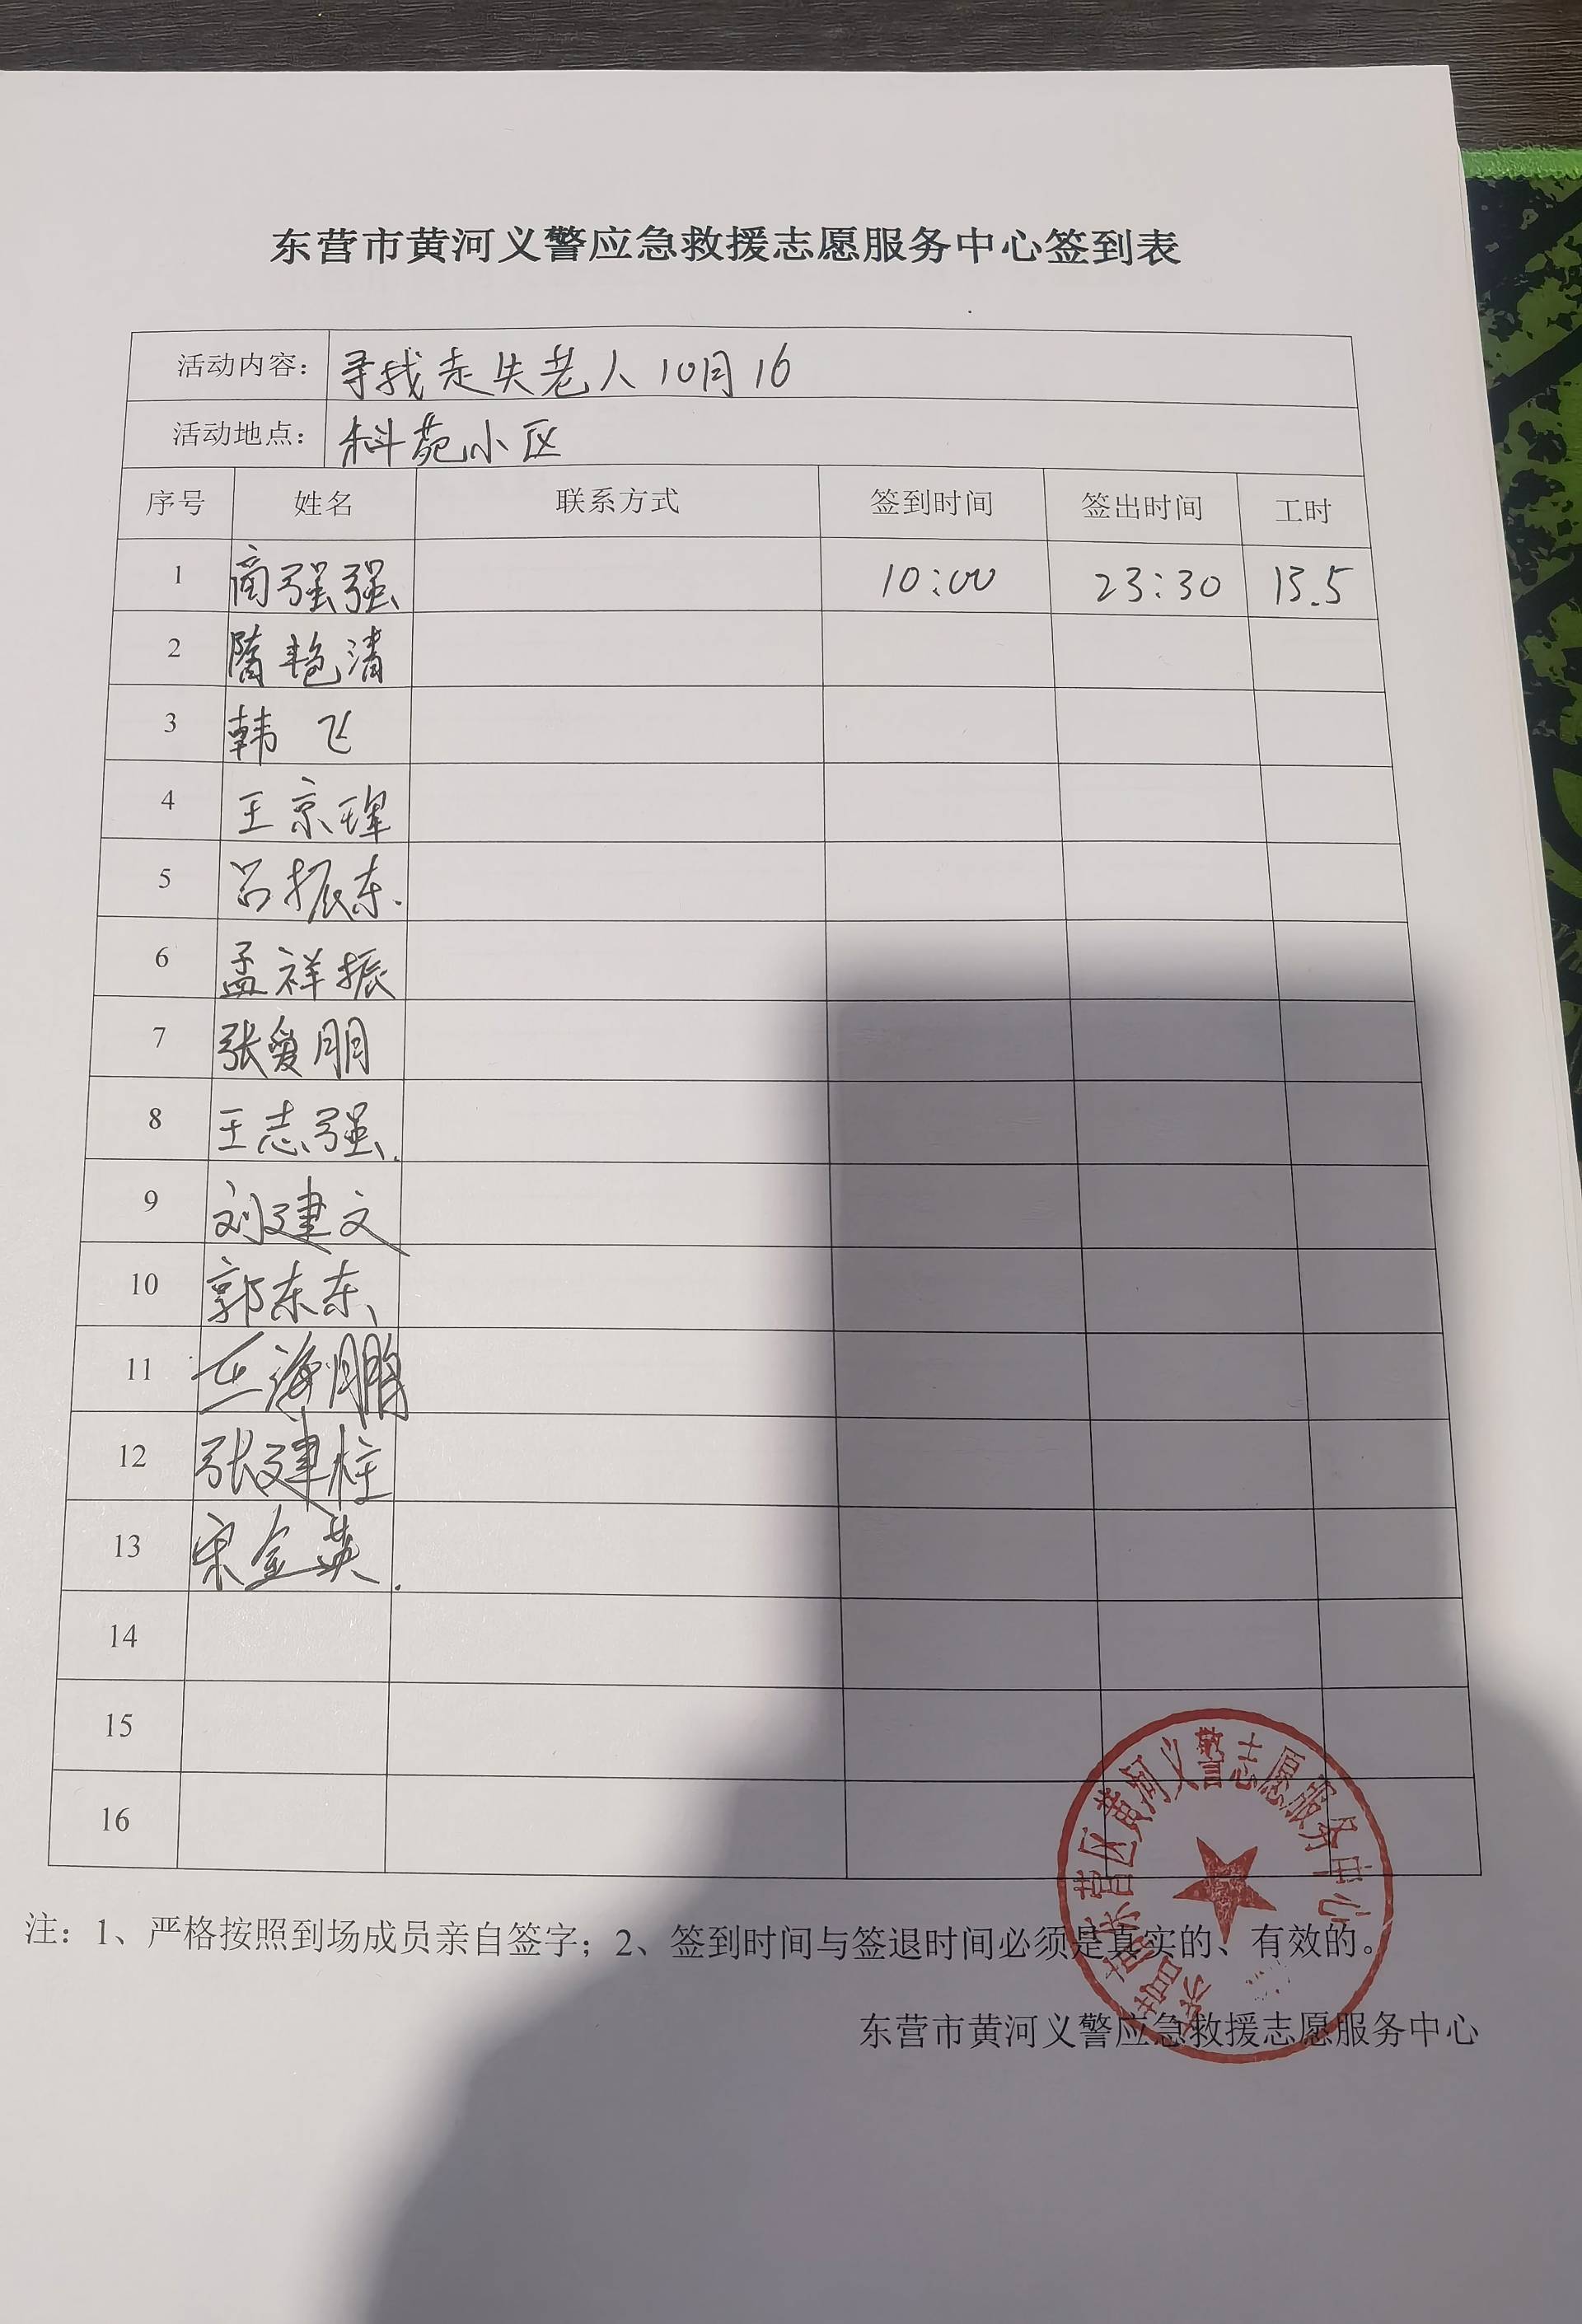 东营市黄河义警应急救援志愿服务中心签到表
活动内容: 寻找走失老人10月16
活动地点: 科苑小区
序号 姓名 联系方式 签到时间 签出时间 工时
1 商强强 10:00 23:30 13.5
2 隋艳清
3 韩飞
4 王京珲
5 吕振东.
6 孟祥振
7 张爱朋
8 王志强.
9 刘建文
10 郭东东
11 王海鹏
12 张建柱
13 宋金英.
14
15
16
东营市东营区黄河义警志愿服务中心
注：1、严格按照到场成员亲自签字；2、签到时间与签退时间必须是真实的、有效的。
东营市黄河义警应急救援志愿服务中心